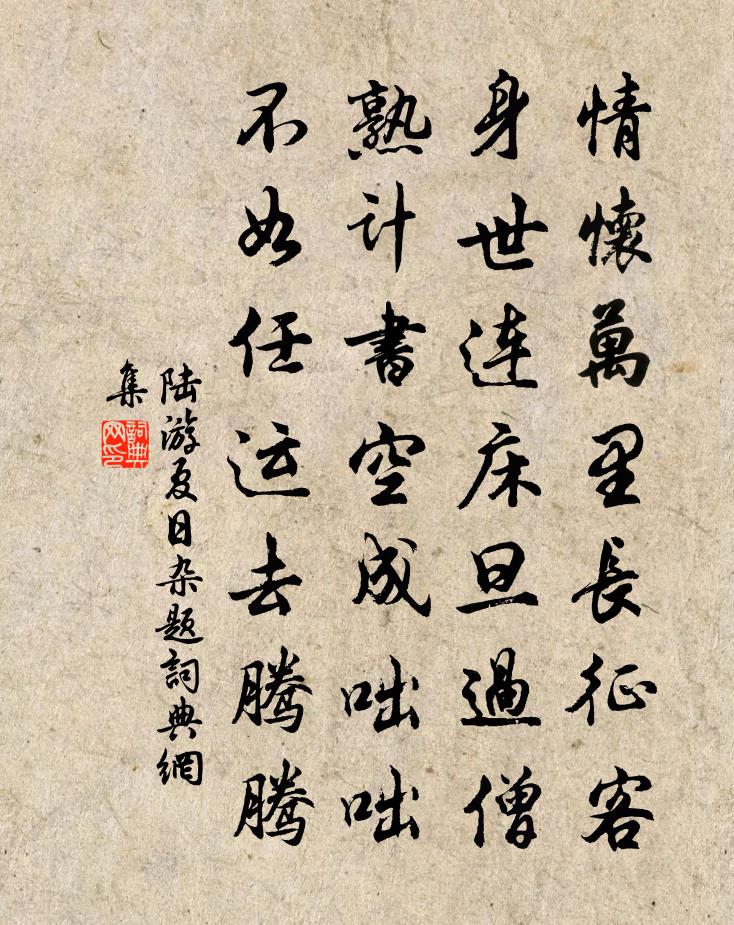 情懷萬里長征客
身世連床旦過僧
熟计書空成咄咄
不如任运去騰騰
陆游夏日杂题詞典網
集
詞典网印